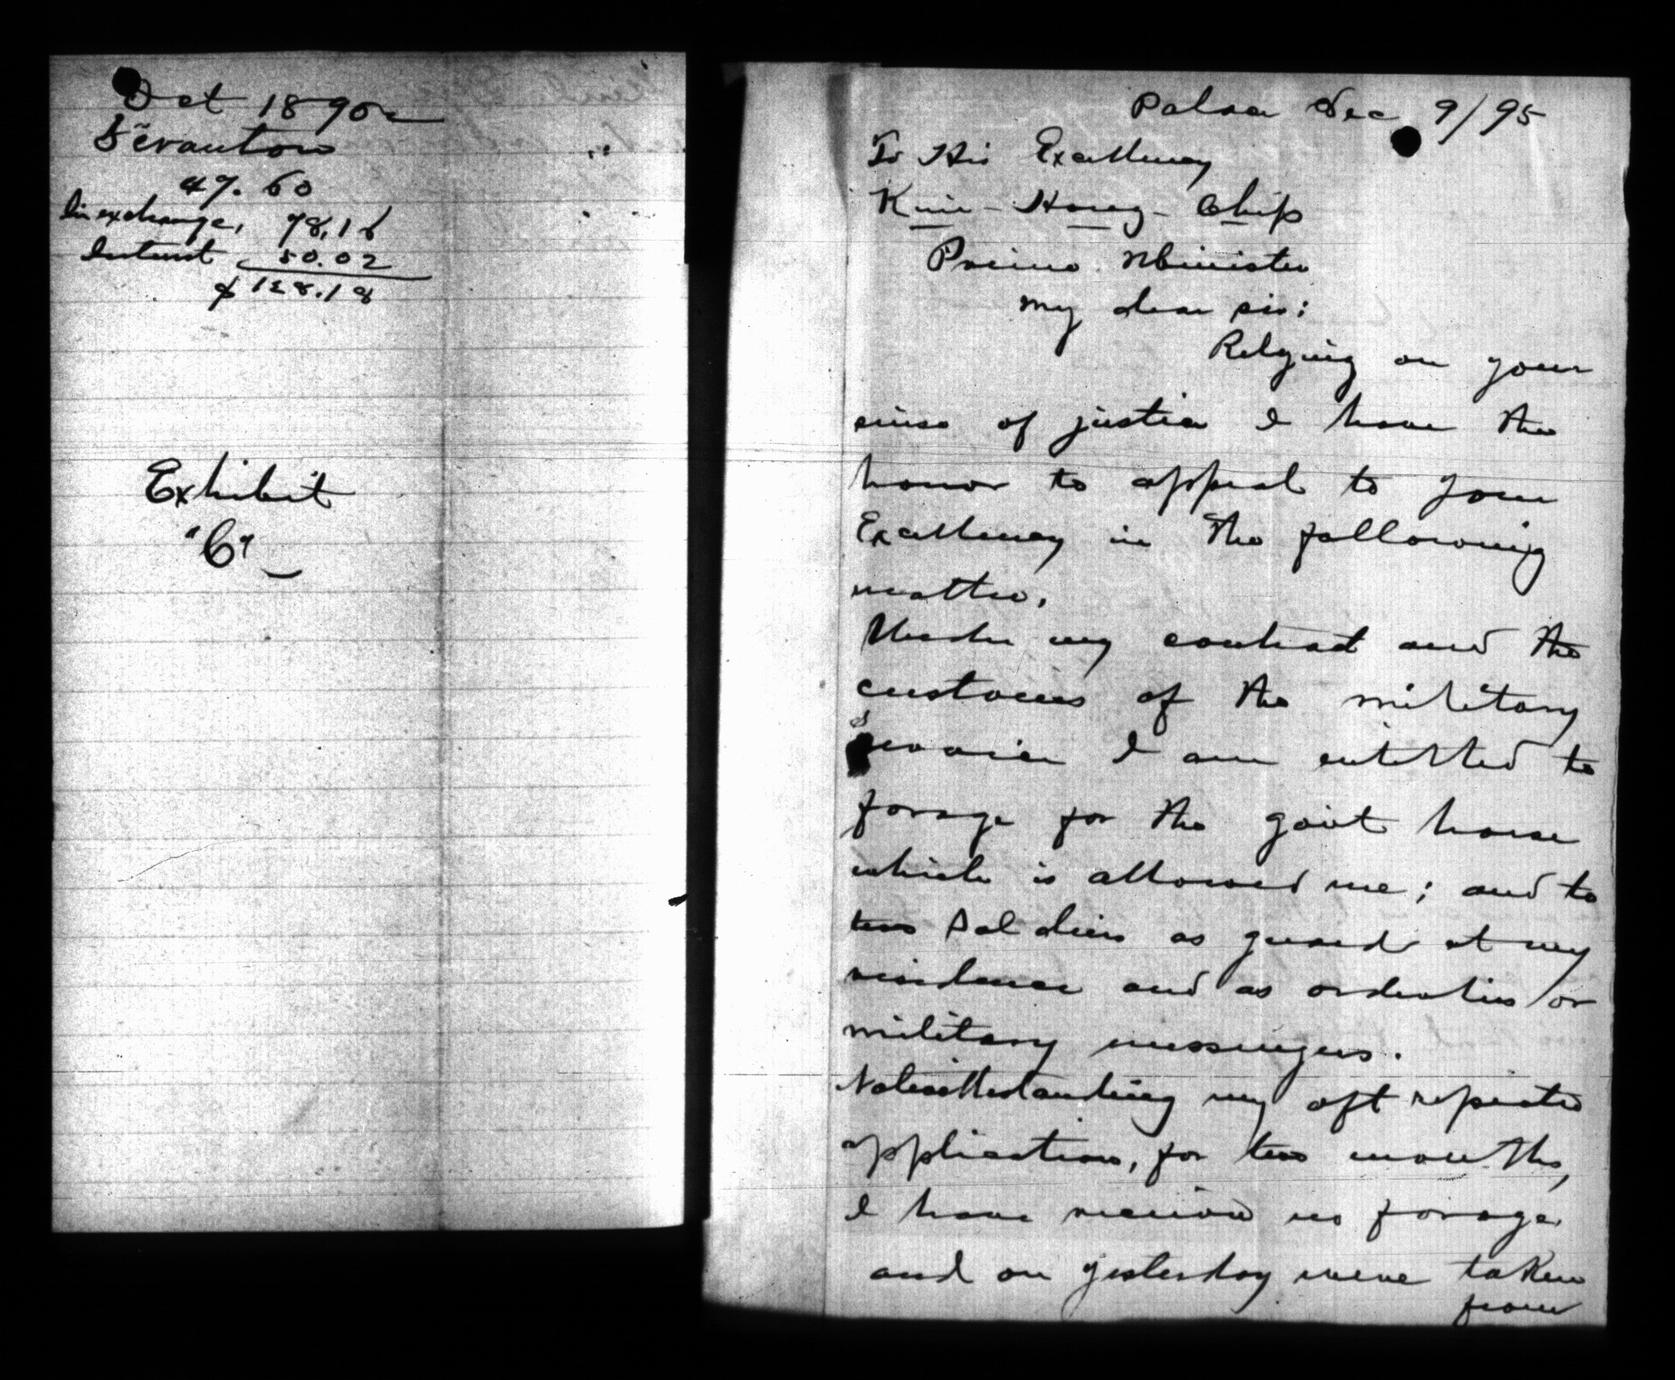 Oct 1890
Scranton
47.60
In exchange, 78,16
Interest 50.02
$128.18
Exhibit
"C"
Palace Dec 9/95
To His Excellency
Kim-Hong-Chip
Prime Minister
My dear sir:
Relying on your
sense of justice I have the
honor to appeal to your
Excellency in the following
matter.
Under my contract and the
customs of the military
service I am entitled to
forage for the govt horse
which is allowed me; and to
two Soldiers as guard at my
residence and as orderlies or
military messengers.
Notwithstanding my oft repeated
application, for two months,
I have received no forage
and on yesterday were taken
from